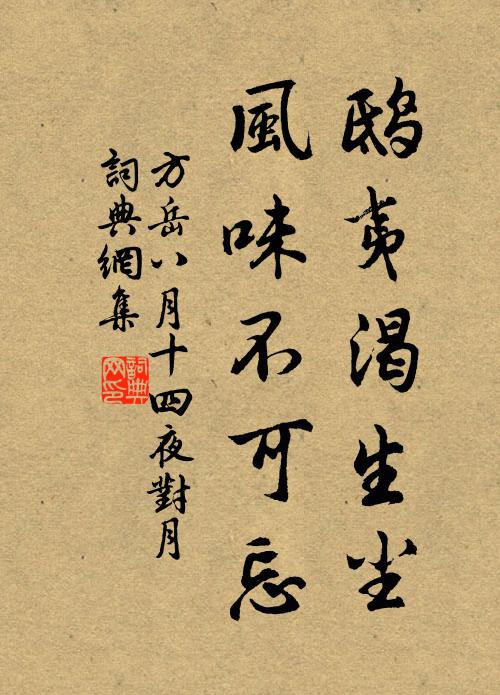 鴟夷渴生尘
風味不可忘
方岳八月十四夜對月
詞典網集
詞典网印